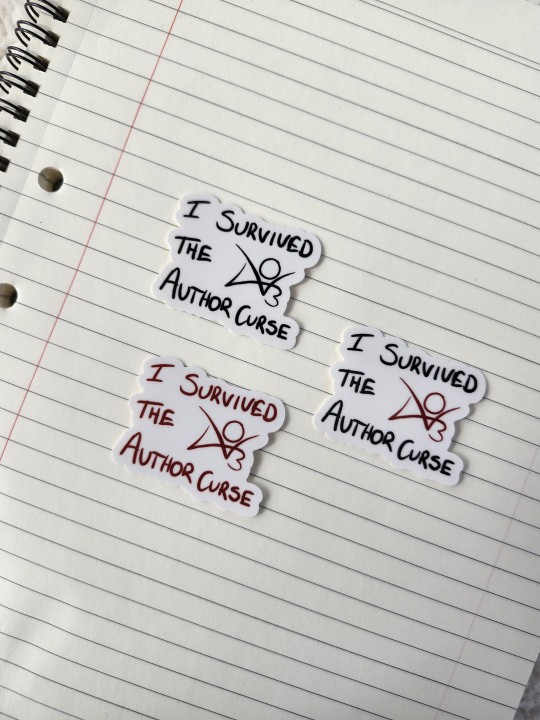 I SURVIVED
THE
AUTHOR CURSE
I SURVIVED
THE
AUTHOR CURSE
I SURVIVED
THE
AUTHOR CURSE